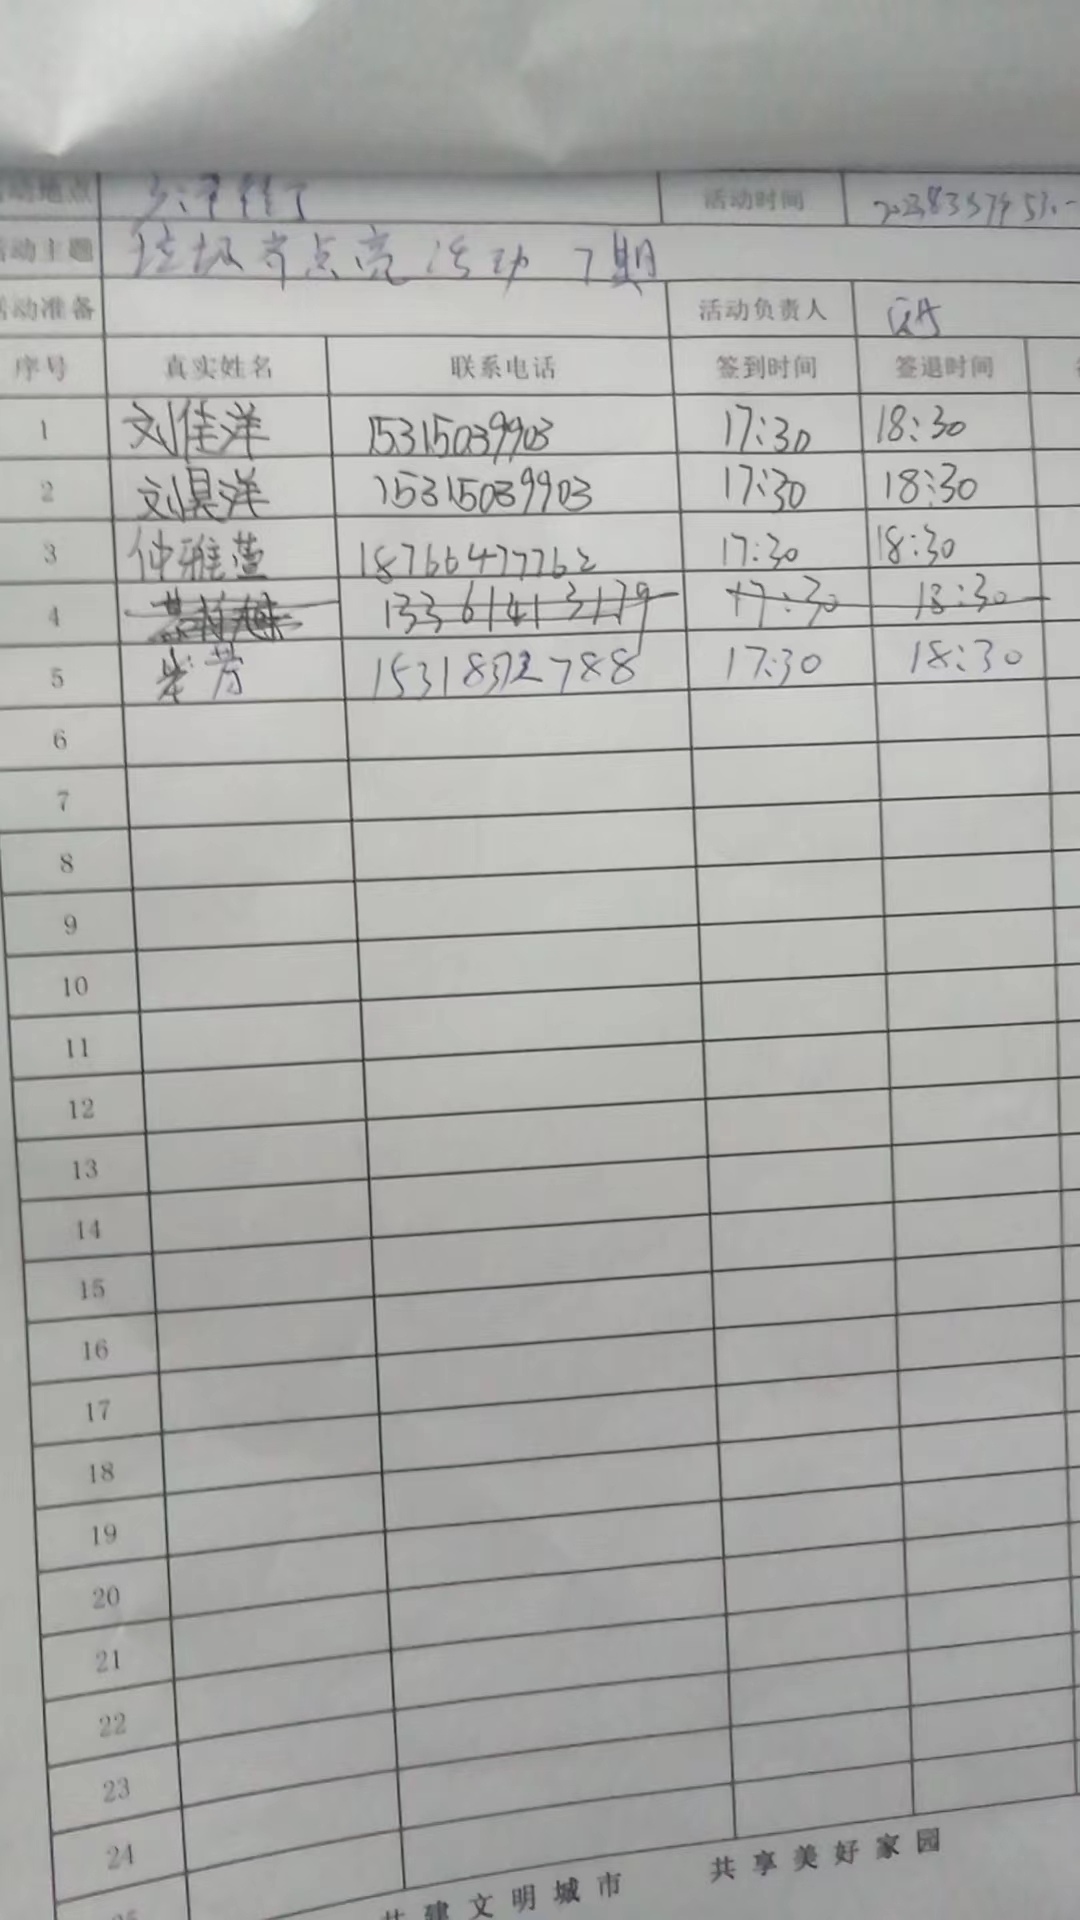 动地点 活动时间
活动主题 垃圾 点亮活动 7期
活动准备 活动负责人
序号 真实姓名 联系电话 签到时间 签退时间
1 刘佳洋 15315039903 17:30 18:30
2 刘昊洋 15315039903 17:30 18:30
3 仲雅萱 18766477762 17:30 18:30
4 13361413179 17:30 18:30
5 芳 15318372788 17:30 18:30
6
7
8
9
10
11
12
13
14
15
16
17
18
19
20
21
22
23
24
25
共建文明城市 共享美好家园